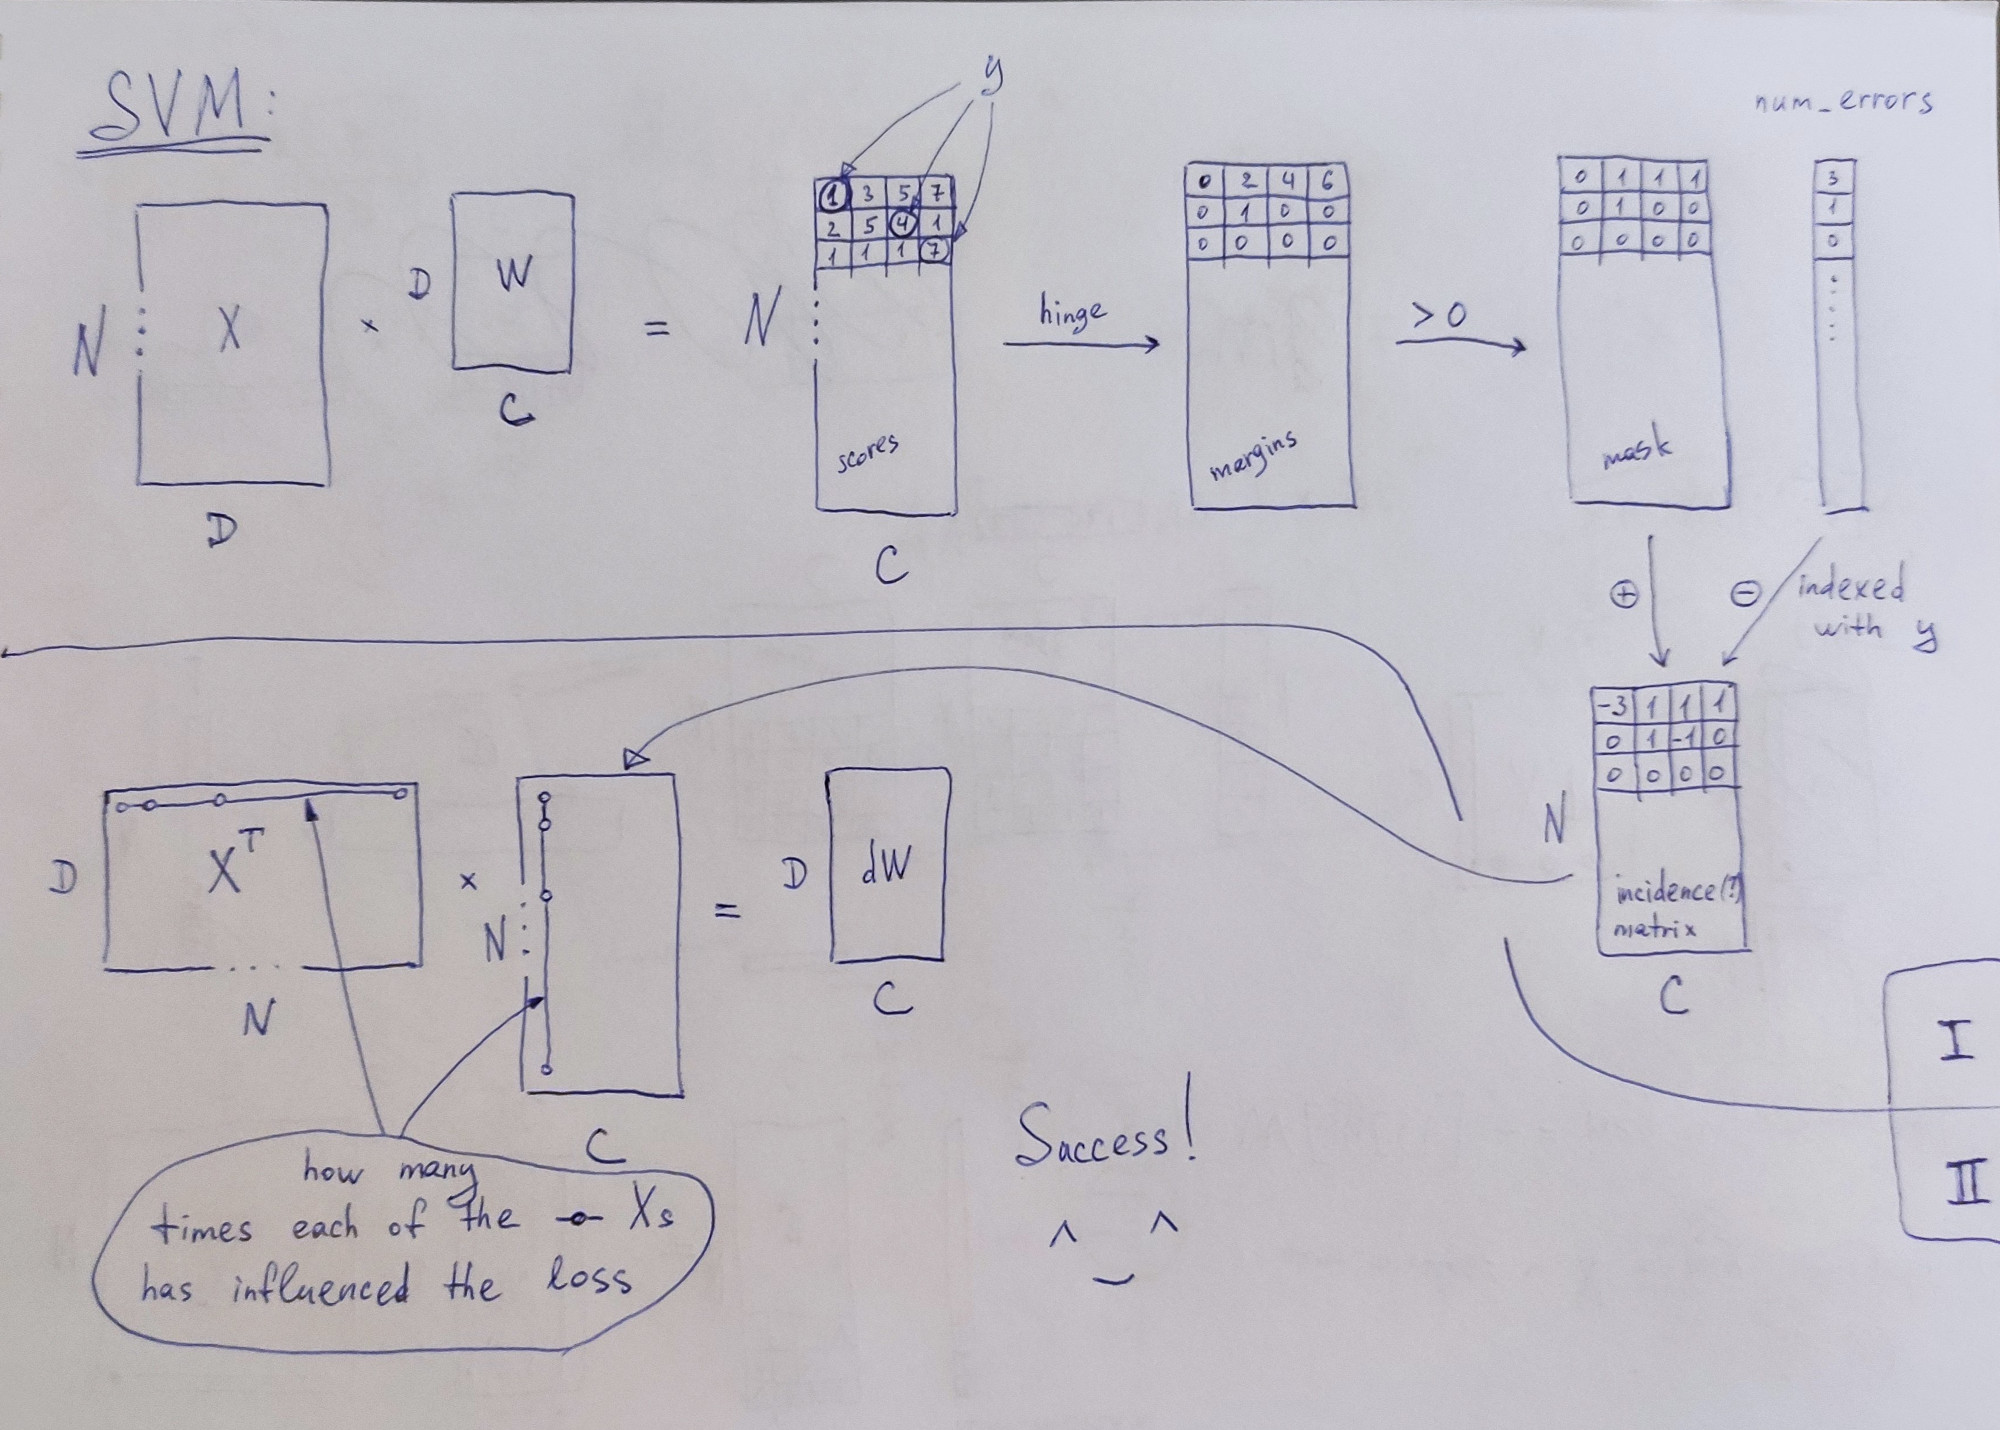 SVM:
y
num_errors
N
X
D
×
D
W
C
=
N
1 3 5 7
2 5 4 1
1 1 1 7
scores
C
hinge
0 2 4 6
0 1 0 0
0 0 0 0
margins
> 0
0 1 1 1
0 1 0 0
0 0 0 0
mask
3
1
0
+
-
indexed
with y
-3 1 1 1
0 1 -1 0
0 0 0 0
N
incidence(?)
matrix
C
D
X^T
N
×
N
C
=
D
dW
C
how many
times each of the Xs
has influenced the loss
Success!
I
II